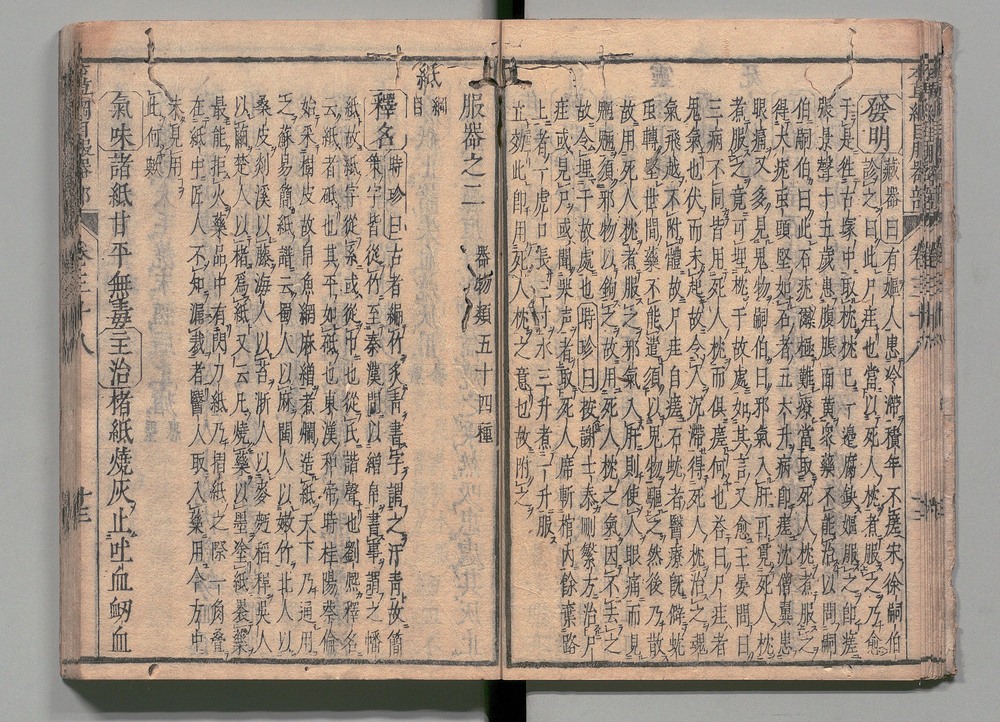 發明藏器曰有嫗人患冷滯積年不瘥宋徐嗣伯
診之曰此尸疰也當以死人枕煮服之乃愈
于是往古冢中取枕枕巳一邊腐缺嫗服之卽瘥
張景聲十五歲患腹脹面黄衆藥不能治以問嗣
伯嗣伯曰此石蚘爾極難療當取死人枕煮服之
得大蚘蟲頭堅如石者五六升病卽瘥沈僧翼患
眼痛又多見鬼物嗣伯曰邪氣入肝可覓死人枕
煮服之竟可埋枕于故處如其言又愈王晏問曰
三病不同皆用死人枕而俱瘥何也荅曰尸疰者
鬼氣也伏而未起故令人沉滯得死人枕治之魂
氣飛越不附體故尸疰自瘥石蚘者醫療旣僻蚘
蟲轉堅世間藥不能遣須以鬼物驅之然後乃散
故用死人枕煮服之邪氣入肝則使人眼痛而見
魍魎須邪物以鉤之故用死人枕之氣因不去之
故令埋于故處也時珍曰按謝士泰刪繁方治尸
疰或見尸或聞哭声者取死人席斬棺内餘棄路
上者一虎口長三寸水三升煮一升服
立効此卽用死人枕之意也故附之
服器之二 器物類五十四種
紙 綱目
釋名時珍曰古者編竹炙青書字謂之汗青故簡
策字皆從竹至秦漢間以繒帛書事謂之幡
紙故紙字從糸或從巾也從氏諧聲也劉熙釋名
云紙者砥也其平如砥也東漢和帝時桂陽蔡倫
始采樹皮故帛魚網麻繒煮爛造紙天下乃通用
之蘇易簡紙譜云蜀人以麻閩人以嫩竹北人以
桑皮剡溪以藤海人以苔浙人以麥䴬稻稈吳人
以繭楚人以楮爲紙又云凡燒藥以墨塗紙裹藥
最能拒火藥品中有閃刀紙乃摺紙之際一角疊
在紙中匠人不知漏裁者醫人取入藥用今方中
未見用
此何歟
氣味諸紙甘平無毒主治楮紙燒灰止吐血衂血
本草綱目服器部 卷三十八 十三